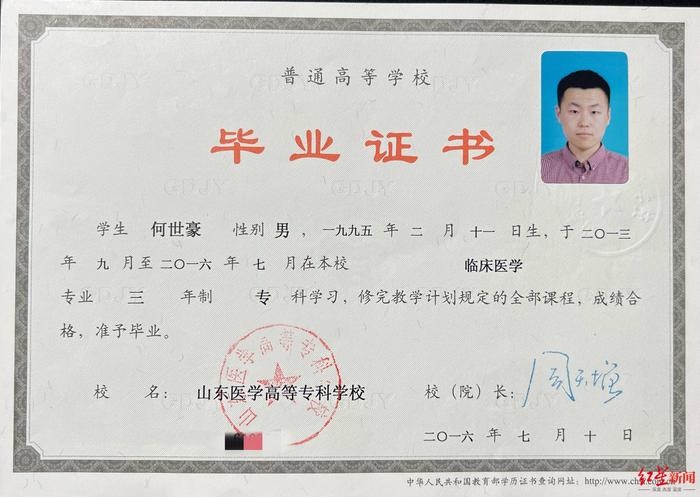 普通高等学校
毕业证书
学生 何世豪 性别 男 ，一九九五 年 二 月 十一 日生，于 二〇一三
年 九 月至 二〇一六 年 七 月在本校 临床医学
专业 三 年制 专 科学习，修完教学计划规定的全部课程，成绩合
格，准予毕业。
校 名： 山东医学高等专科学校 校（院）长：
山东医学高等专科学校
二〇一六 年 七 月 十 日
中华人民共和国教育部学历证书查询网址：http://www.ch
红星新闻
深度 态度 温度